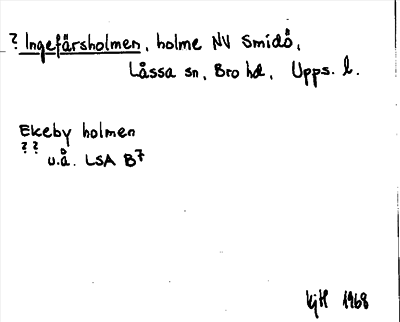 ? Ingefärsholmen, holme NV Smidö,
Låssa sn, Bro hd, Upps. l.
Ekeby holmen
?? u.å. LSA B7
KjH 1968